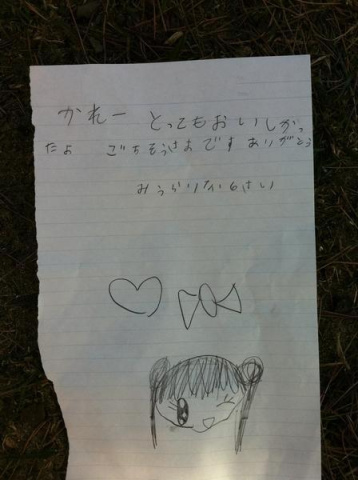 かれー とってもおいしかっ
たよ ごちそうさまです ありがとう
みうらりな 6さい